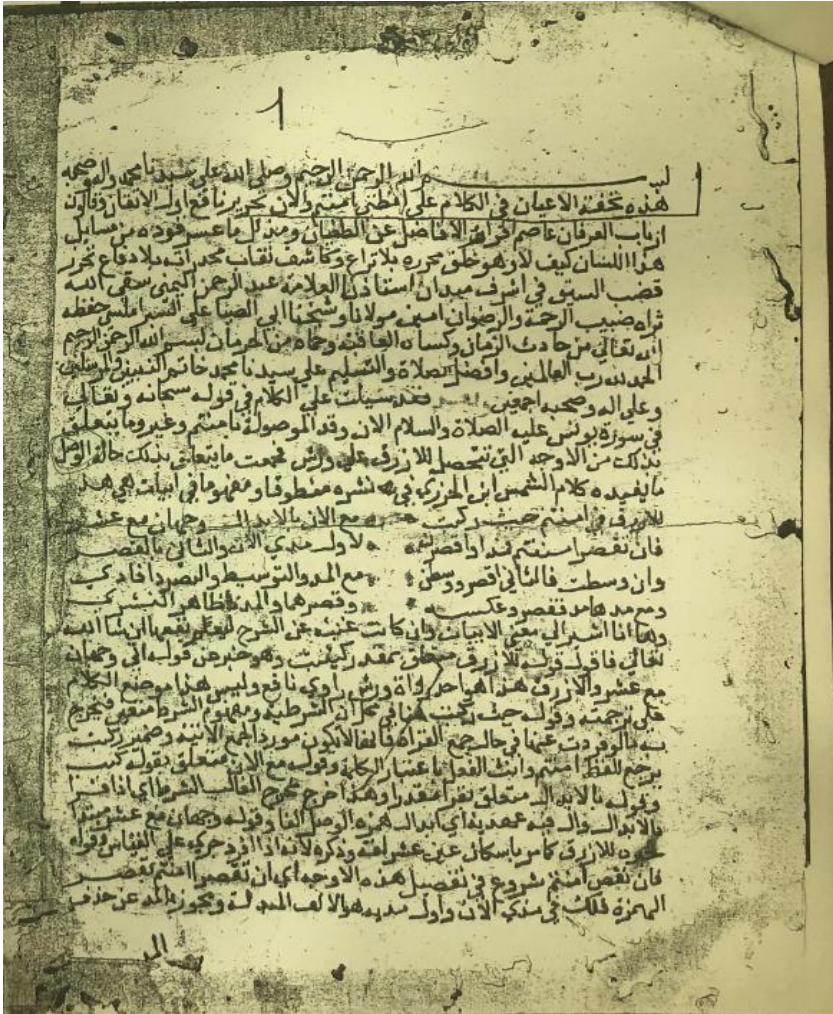 ١
بسم الله الرحمن الرحيم وصلى الله على سيدنا محمد واله وصحبه
هذه تحفة الاعيان في الكلام على لفظتي امنتم والان تحرير نافع اولي الاتقان وقالون
ارباب العرفان عاصم الافاضل عن الطغيان ومذلل ما عسر قوده من مسايل
هذا اللسان كيف لا وهو خلق محرره بلا نزاع وكاشف نقاب مخدراته بلا دفاع محرز
قصب السبق في اشرف ميدان استاذنا العلامة عبد الرحمن اليمني سقى الله
ثراه صبيب الرحمة والرضوان امين مولانا وشيخنا ابي الضيا علي الشبراملسي حفظه
الله تعالى من حادث الزمان وكساه العافية وحماه من الحرمان بسم الله الرحمن الرحيم
الحمد لله رب العالمين وافضل الصلاة والتسليم على سيدنا محمد خاتم النبيين والمرسلين
وعلى اله وصحبه اجمعين فقد سيلت على الكلام في قوله سبحانه وتعالى
في سورة يونس عليه الصلاة والسلام الان وقد الموصولة بامنتم وغير وما يتعلق
بذلك من الاوجه التي تتحصل للازرق على ورش فجمعت ما يتعلق بذلك حالة الوصل
ما يفيده كلام الشمس ابن الجزري في نشره منطوقا ومفهوما في ابيات هي هذ
للازرق في امنتم حيث ركبت مع الان بالابدال وجهان مع عشر
فان تقصر امنتم فمد او اقصرن لاول مدي الان والثاني بالقصر
وان وسطت فالثاني اقصر ووسطن مع المد والتوسيط والقصر ذا فادري
ومع مدها مد فقصر وعكسه وقصرهما والمد ظاهر النشر
وها انا اشير الى معنى الابيات وان كانت غنية عن الشرح ليعم نفعها ان شا الله
تعالى فاقول قوله للازرق متعلق بمقدر وهو خبر عن قوله اتي وجهان
مع عشر والازرق هذا هو احد رواة ورش راوي نافع وليس هذا موضع الكلام
على ترجمته وقوله حيث ركبت هنا في محل ان الشرطية ومفهوم الشرط معتبر فيخرج
به ما لو فردت عنها في حال جمع القراة فانها لا يكون مورد الجمع الاتية وضمير ركبت
يرجع للفظ امنتم وانث الفعل باعتبار الكلمة وقوله مع الان متعلق بقوله ركبت
وقوله بالابدال متعلق بتقرا مقدرا وهذا خرج مخرج الغالب الشرط اي اذا قرا
بالابدال وال فيه عهدية اي ابدال همزة الوصل الفا وقوله وجهان مع عشر مبتدا
خبره للازرق كما مر باسكان عين عشر لغة وذكره لانه اذا افرد جرى على القياس وقوله
فان تقصر امنتم شروع في تفصيل هذه الاوجه اي ان تقصر امنتم بقصر
الهمزة فلك في مدي الان واول مديه هو الالف المبدلة ويجوز بالمد عن حذف